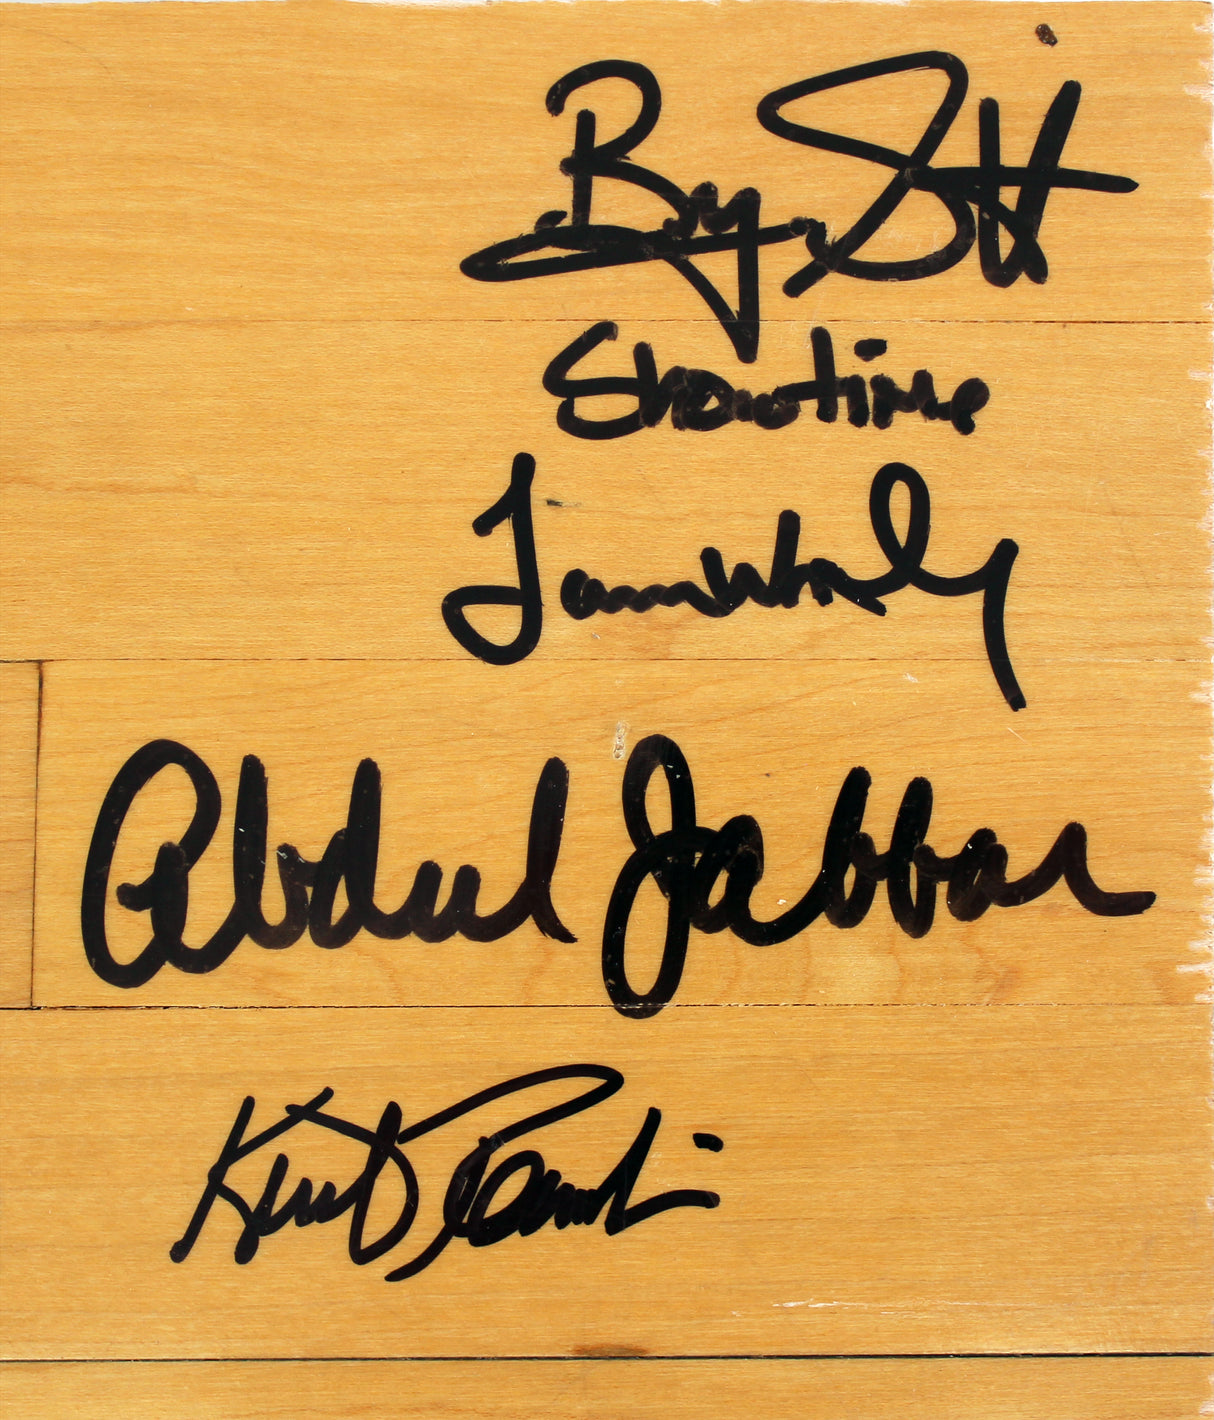 Byron Scott
Showtime
James Worthy
Abdul Jabbar
Kurt Rambis